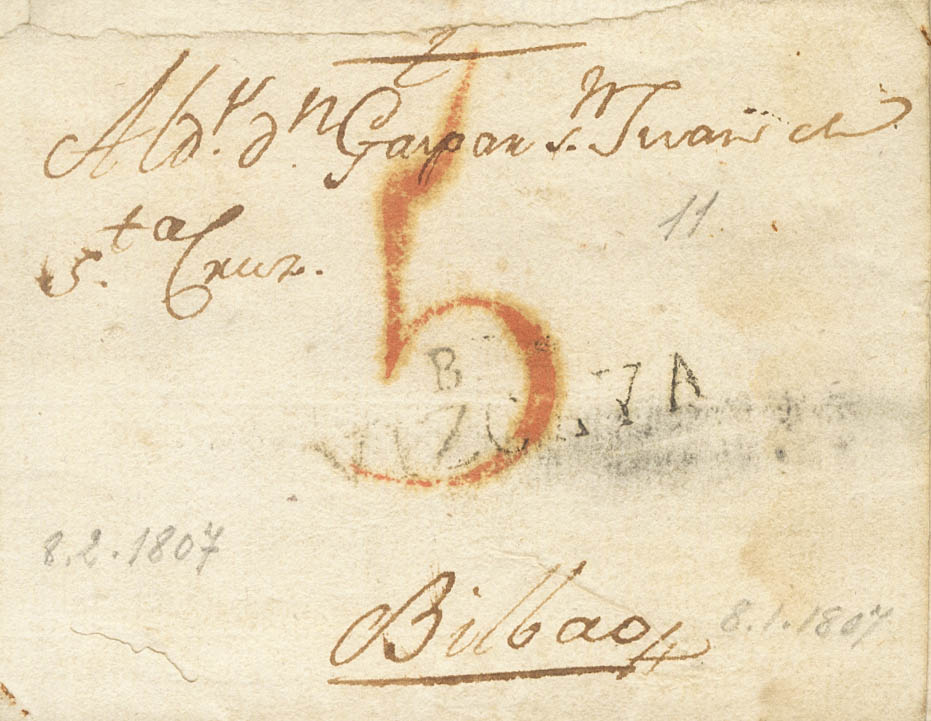 A Dn. Dn Gaspar Sn. Juan de
Sta Cruz.
11.
5
B
VIZCAYA
8.2.1807
Bilbao
8.1.1807